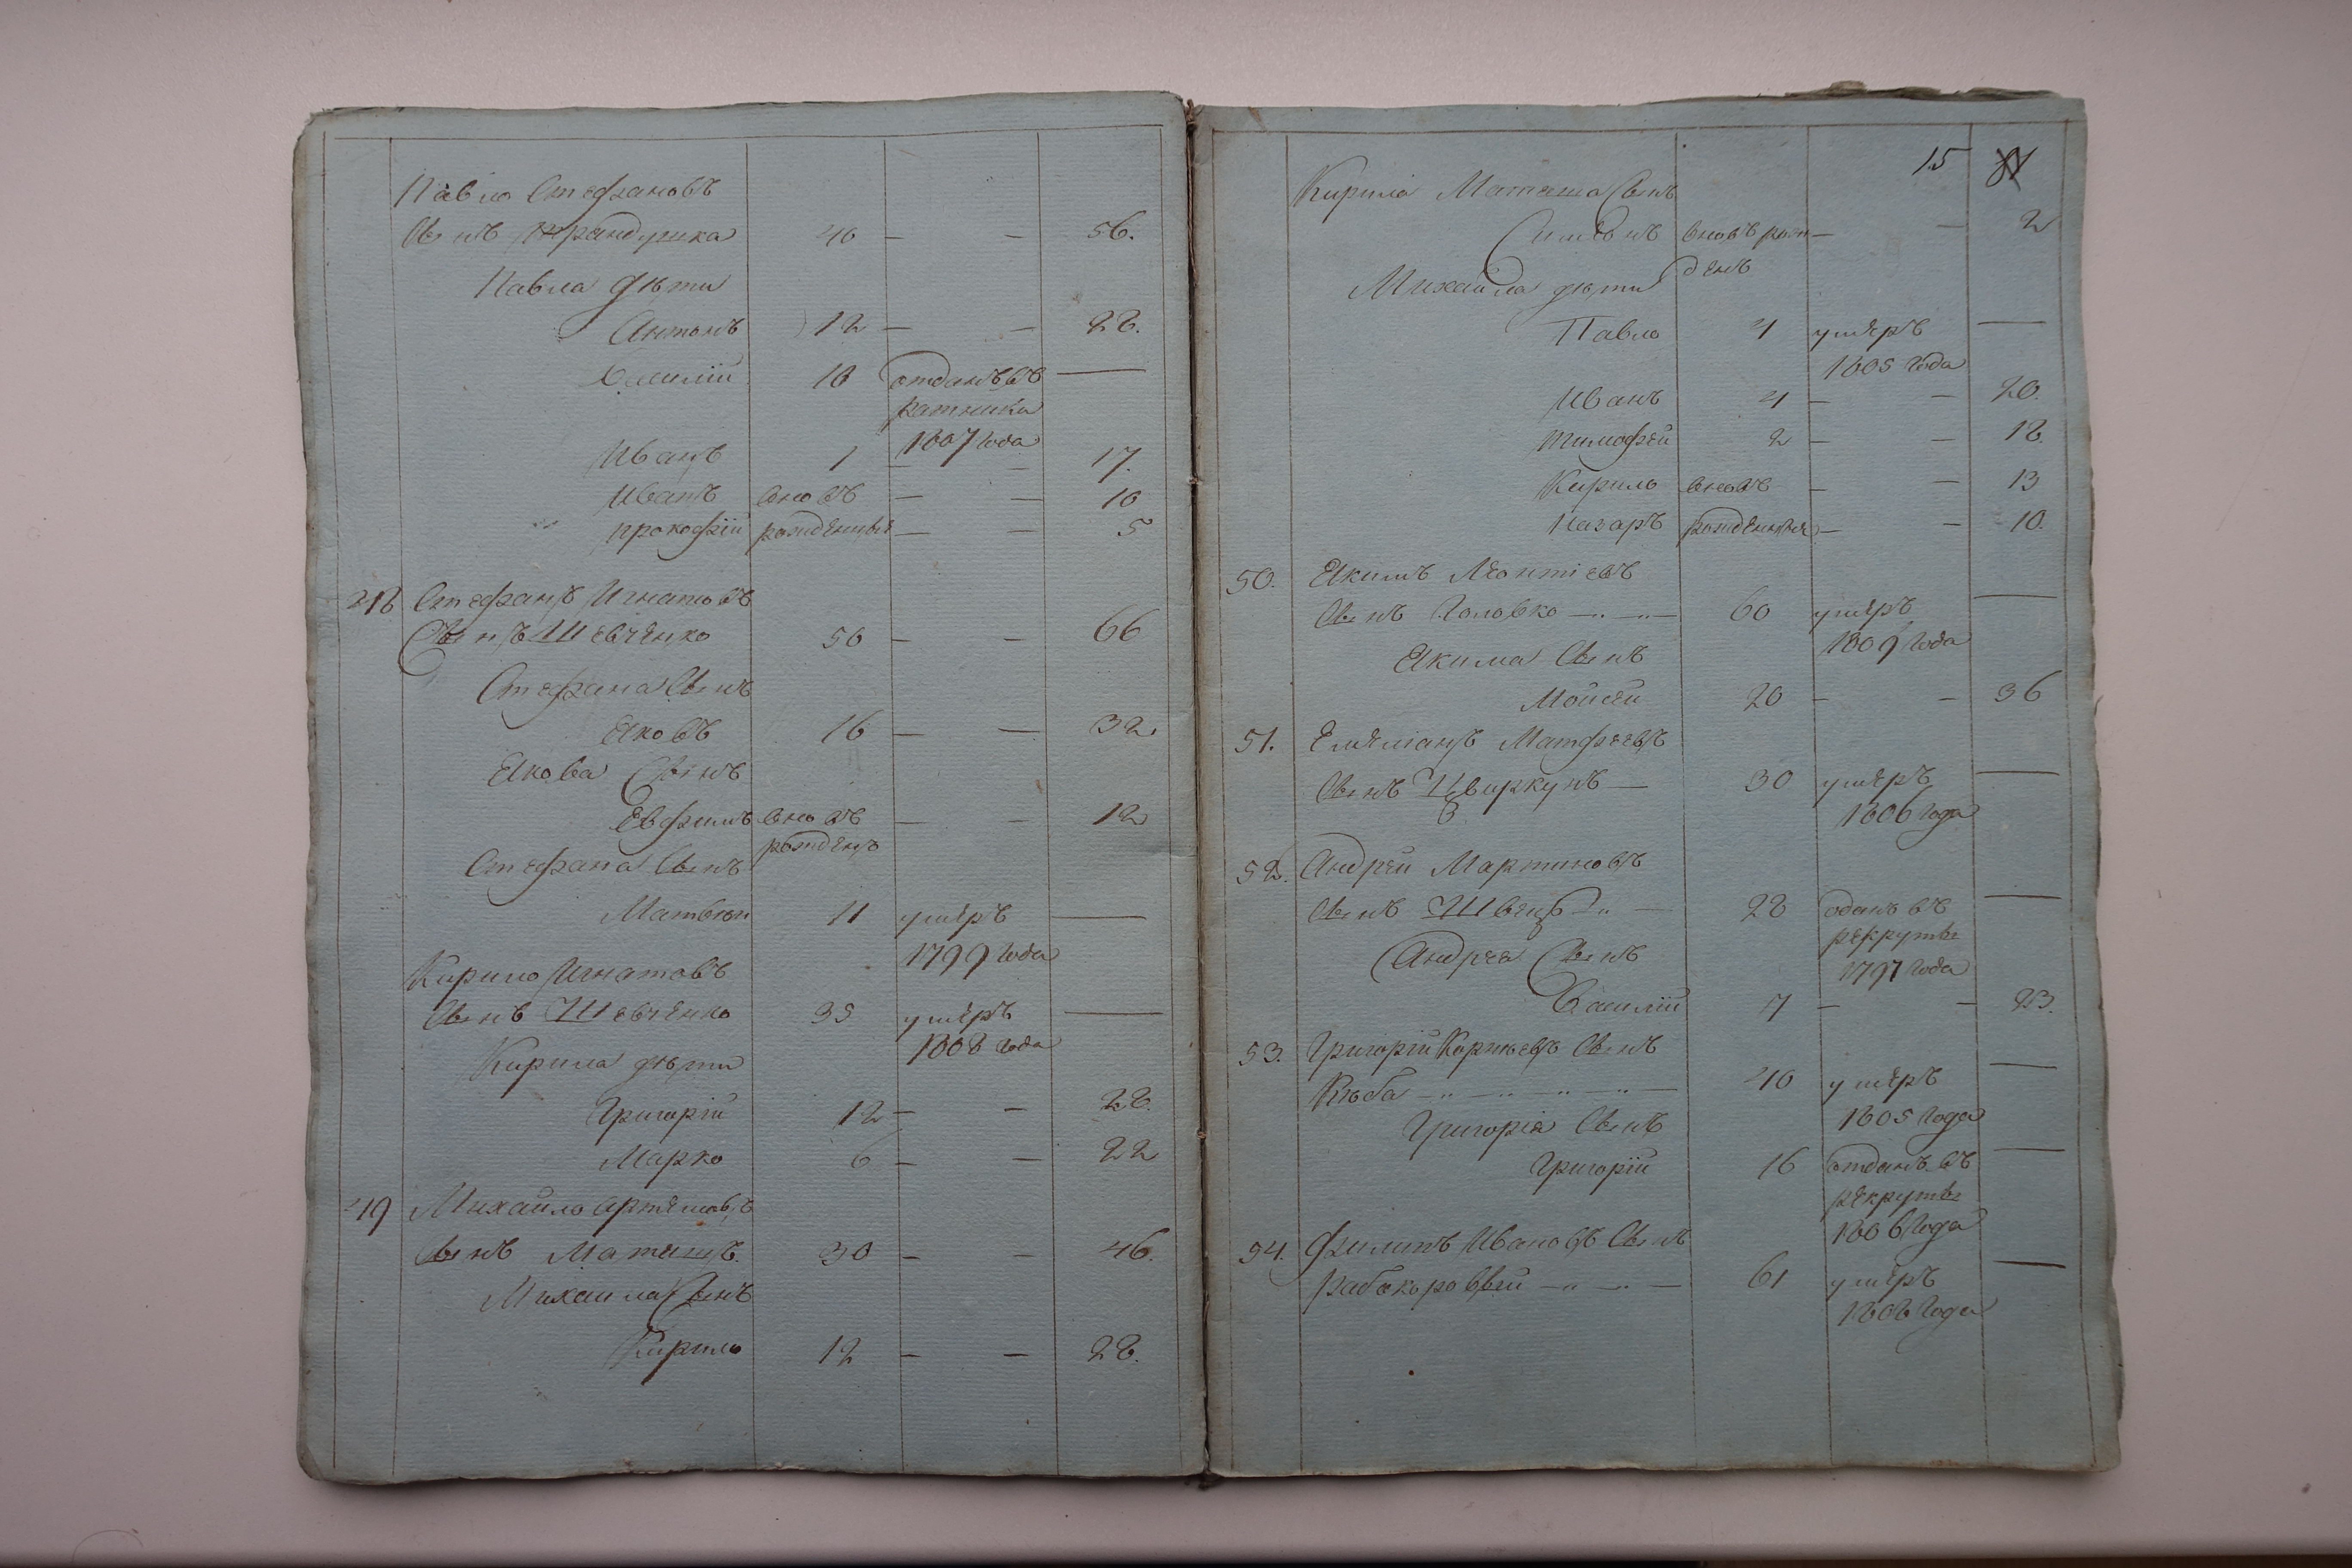 Павло Стефановъ
Сынъ Трандушка 40 — — 56.
Павла дѣти
Антонъ 12 — — 28.
Василій 10 отданъ въ —
ратники
1807 года
Иванъ 1 — — 17.
Иванъ вновь — — 10
прокофій рожденные — — 5
48 Стефанъ Игнатовъ
Сынъ Шевченко 50 — — 66
Стефана Сынъ
Яковъ 16 — — 32.
Якова Сынъ
Евфимъ вновъ — — 12
рожденъ
Стефана Сынъ
Матвей 11 умеръ —
1799 года
Кирило Игнатовъ
Сынъ Шевченко 35 умеръ —
1808 года
Кирила дѣти
Григорій 12 — — 28.
Марко 6 — — 22
49 Михайло артемовъ
Сынъ 30 — — 46.
Михаила Сынъ
Кирило 12 — — 28.
15
Кирила Сынъ
Симеонъ вновъ рож — — 2
денъ
Михайла дѣти
Павло 4 умеръ —
1805 года
Иванъ 4 — — 20.
Тимофей 2 — — 18.
Кирило вновъ — — 13
Назаръ рожденные — — 10.
50. Якимъ Леонтіевъ
Сынъ Головко 60 умеръ —
1809 года
Якима Сынъ
Мойсей 20 — — 36
51. Емеліанъ Матфеевъ
Сынъ Цвиркунъ — 30 умеръ —
1806 года
52. Андрей Мартиновъ
Сынъ Швецъ 28 оданъ въ —
рекруты
1797 года
Андрея Сынъ
Василій 7 — — 23.
53. Григорій Корнѣевъ Сынъ
40 умеръ —
1805 года
Григорія Сынъ
Григорій 16 отданъ въ —
рекруты
1806 года
54. Филипъ Ивановъ Сынъ
Рабокоровый 61 умеръ —
1808 года